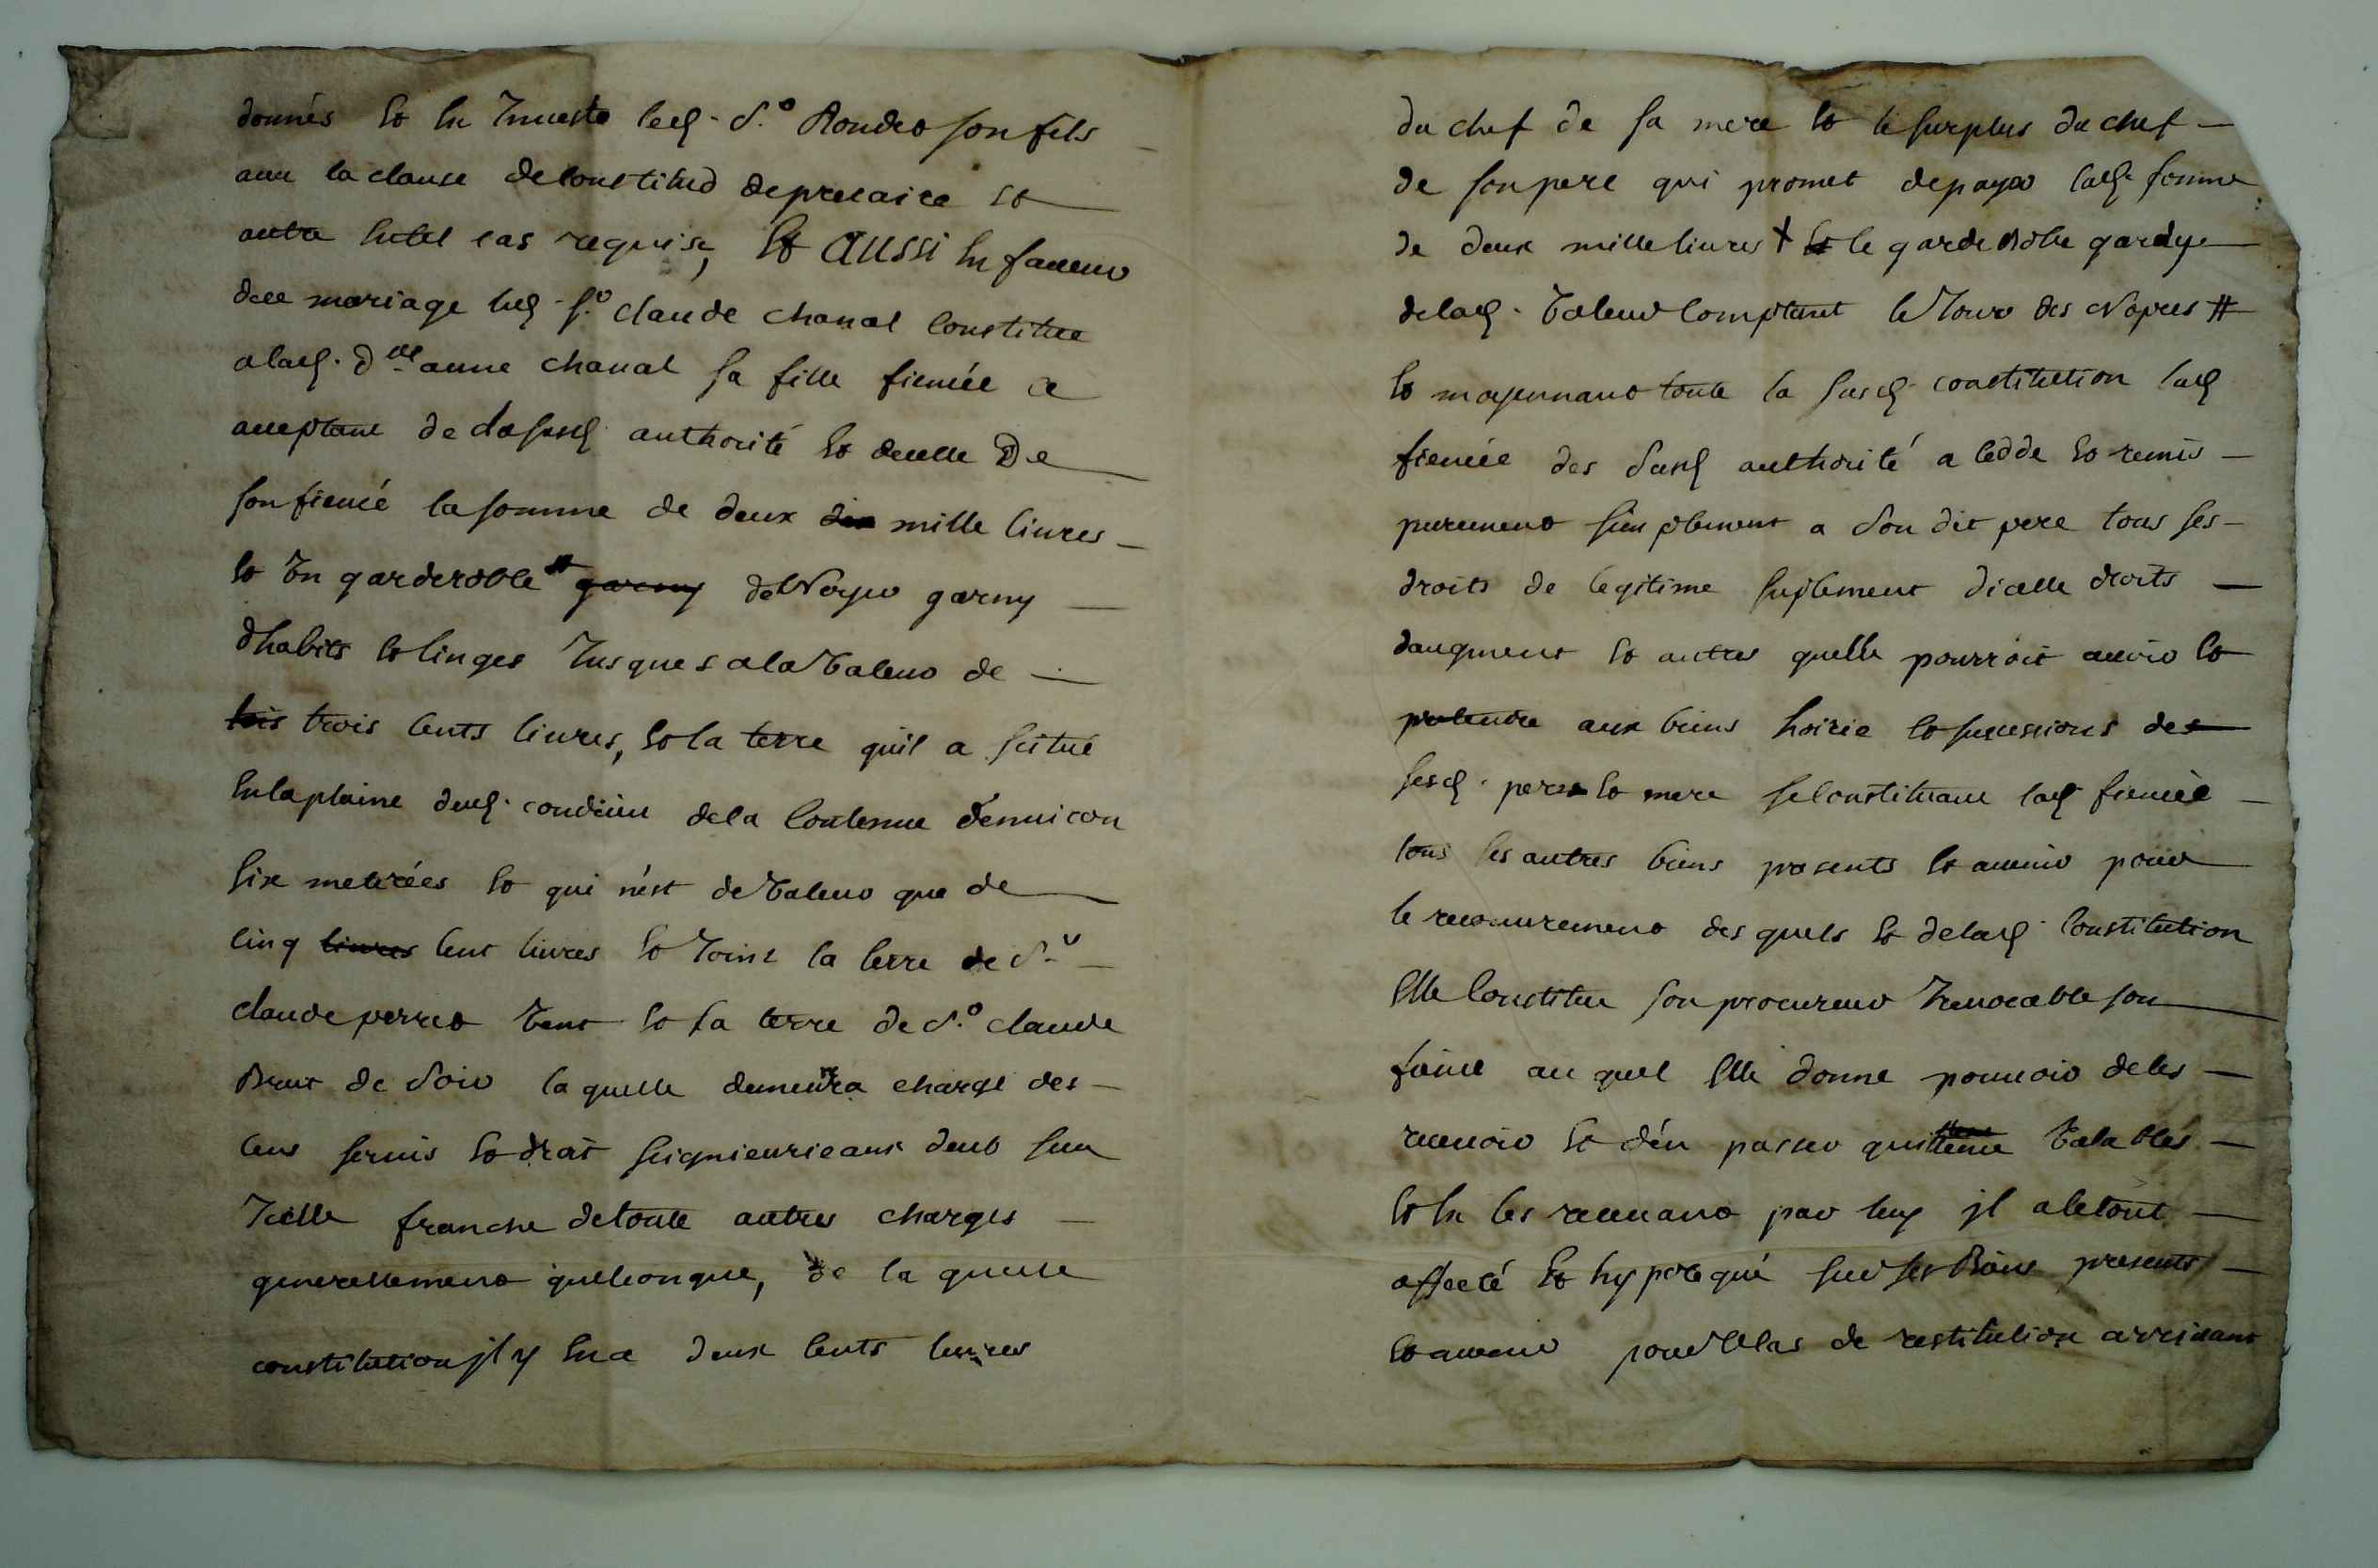 donnés et en Investe led. Sr. Rondro son fils
avec la clause de constitud de precaire et
autre entel cas requise, et AUSSI en faveur
duu mariage led. Sr. claude chanal constitue
a lad. dlle anne chanal sa fille fiencée ce
acceptant de la susd. authorité et decelle De
son fiencé la somme de deux mille livres
et Vn garderoble de Noyer garny
dhabits et linges Jusques ala Valeur de
trois cents livres, et la terre quil a scitué
en la plaine dud. condrieu dela contenue denuiron
six meterées et qui n'est de Valeur que de
cinq cent livres et Joint la terre de Sr.
claude perret Vent et la terre de Sr. claude
Brut de Soir la quelle demeurera charge des
cens servis et droit seignieurieaux deub sur
Icelle franche de toute autres charges
generellement quelconque, de la quelle
constitution jl y en a deux cents livres
du chef de sa mere et le surplus du chef
de son pere qui promet de payer lad. somme
de deux mille livres + et le garde Robe gardy
delad. Valeur comptant le Jour des Nopces #
et moyennant toute la susd. constitution lad.
fiencée des susd. authorité a cedde et remis
purement simplement a son dit pere tous ses
droits de legitime suplement d'icelle droits
daugment et autres quelle pourroit avoir et
pretendre aux biens hoirie et successions des
sesd. pere et mere se constituant lad. fiencée
tous ses autres biens presents et avenir pour
le recouurement des quels et delad. constitution
Elle constitue son procureur Irreuocable son
fiancé au quel Elle donne pouuoir deles
receuoir et d'en passer quittence Valables
et en les receuant par luy jl a le tout
affecté et hypotequé sur ses Biens presents
et avenir pour le cas de restitution arriuant